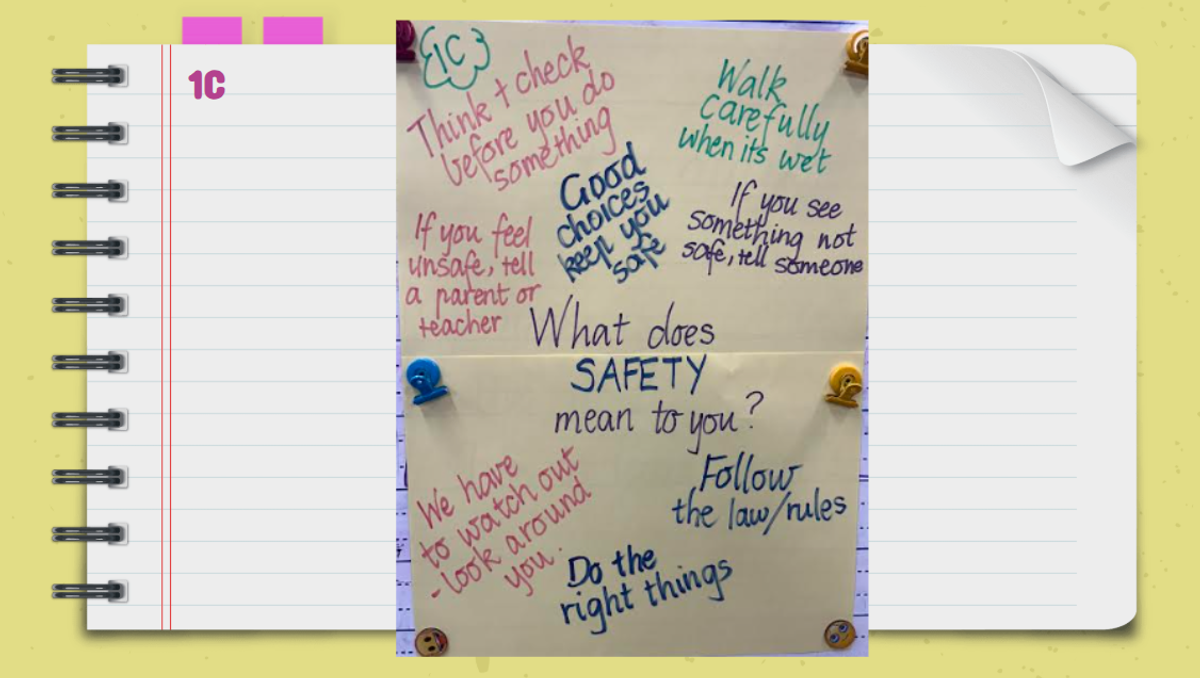 1C
1C
Think + check
before you do
something
Walk
carefully
when its wet
Good
choices
keep you
safe
If you see
something not
safe, tell someone
If you feel
unsafe, tell
a parent or
teacher
What does
SAFETY
mean to you?
We have
to watch out
-look around
you.
Follow
the law/rules
Do the
right things